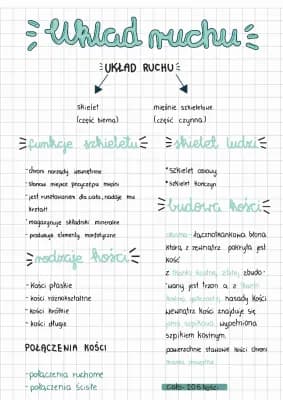 Układ ruchu
UKŁAD RUCHU
szkielet
(część bierna)
mięśnie szkieletowe
(część czynna)
funkcje szkieletu
- chroni narządy wewnętrzne
- stanowi miejsce przyczepu mięśni
- jest rusztowaniem dla ciała, nadaje mu
kształt
- magazynuje składniki mineralne
- produkuje elementy morfotyczne
rodzaje kości
- kości płaskie
- kości różnokształtne
- kości krótkie
- kości długie
POŁĄCZENIA KOŚCI
- połączenia ruchome
- połączenia ściste
szkielet ludzi
* szkielet osiowy
* szkielet kończyn
budowa kości
okostna - łącznotkankowa błona
którą z zewnątrz pokryta jest
kość
z tkanki kostnej zbitej zbudo-
wany jest trzon a z tkanki
kostnej gąbczastej nasady kości
wewnątrz kości znajduje się
jama szpikowa, wypełniona
szpikiem kostnym.
powierzchnie stawowe kości chroni
tkanka chrzęstna
Ciało: 206 kości